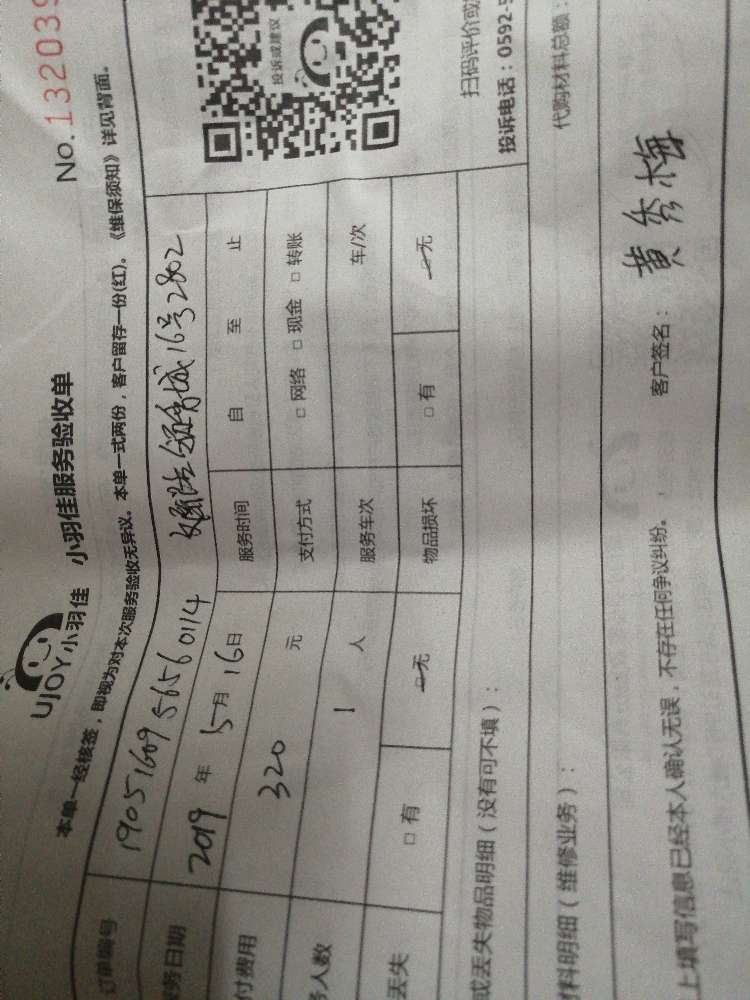 UJOY小羽佳 小羽佳服务验收单
No.132039
本单一经核签，即视为对本次服务验收无异议。本单一式两份，客户留存一份(红)。《维保须知》详见背面。
订单编号 1905160956560114 16号2802
务日期 2019年5月16日 服务时间 自 至 止
付费用 320 元 支付方式 □网络 □现金 □转账
务人数 1 人 服务车次 车/次
丢失 □有 无 物品损坏 □有 无
投诉或建议
扫码评价或
投诉电话：0592-5
或丢失物品明细（没有可不填）：
代购材料总额：
材料明细（维修业务）：
上填写信息已经本人确认无误，不存在任何争议纠纷。 客户签名：黄秀梅